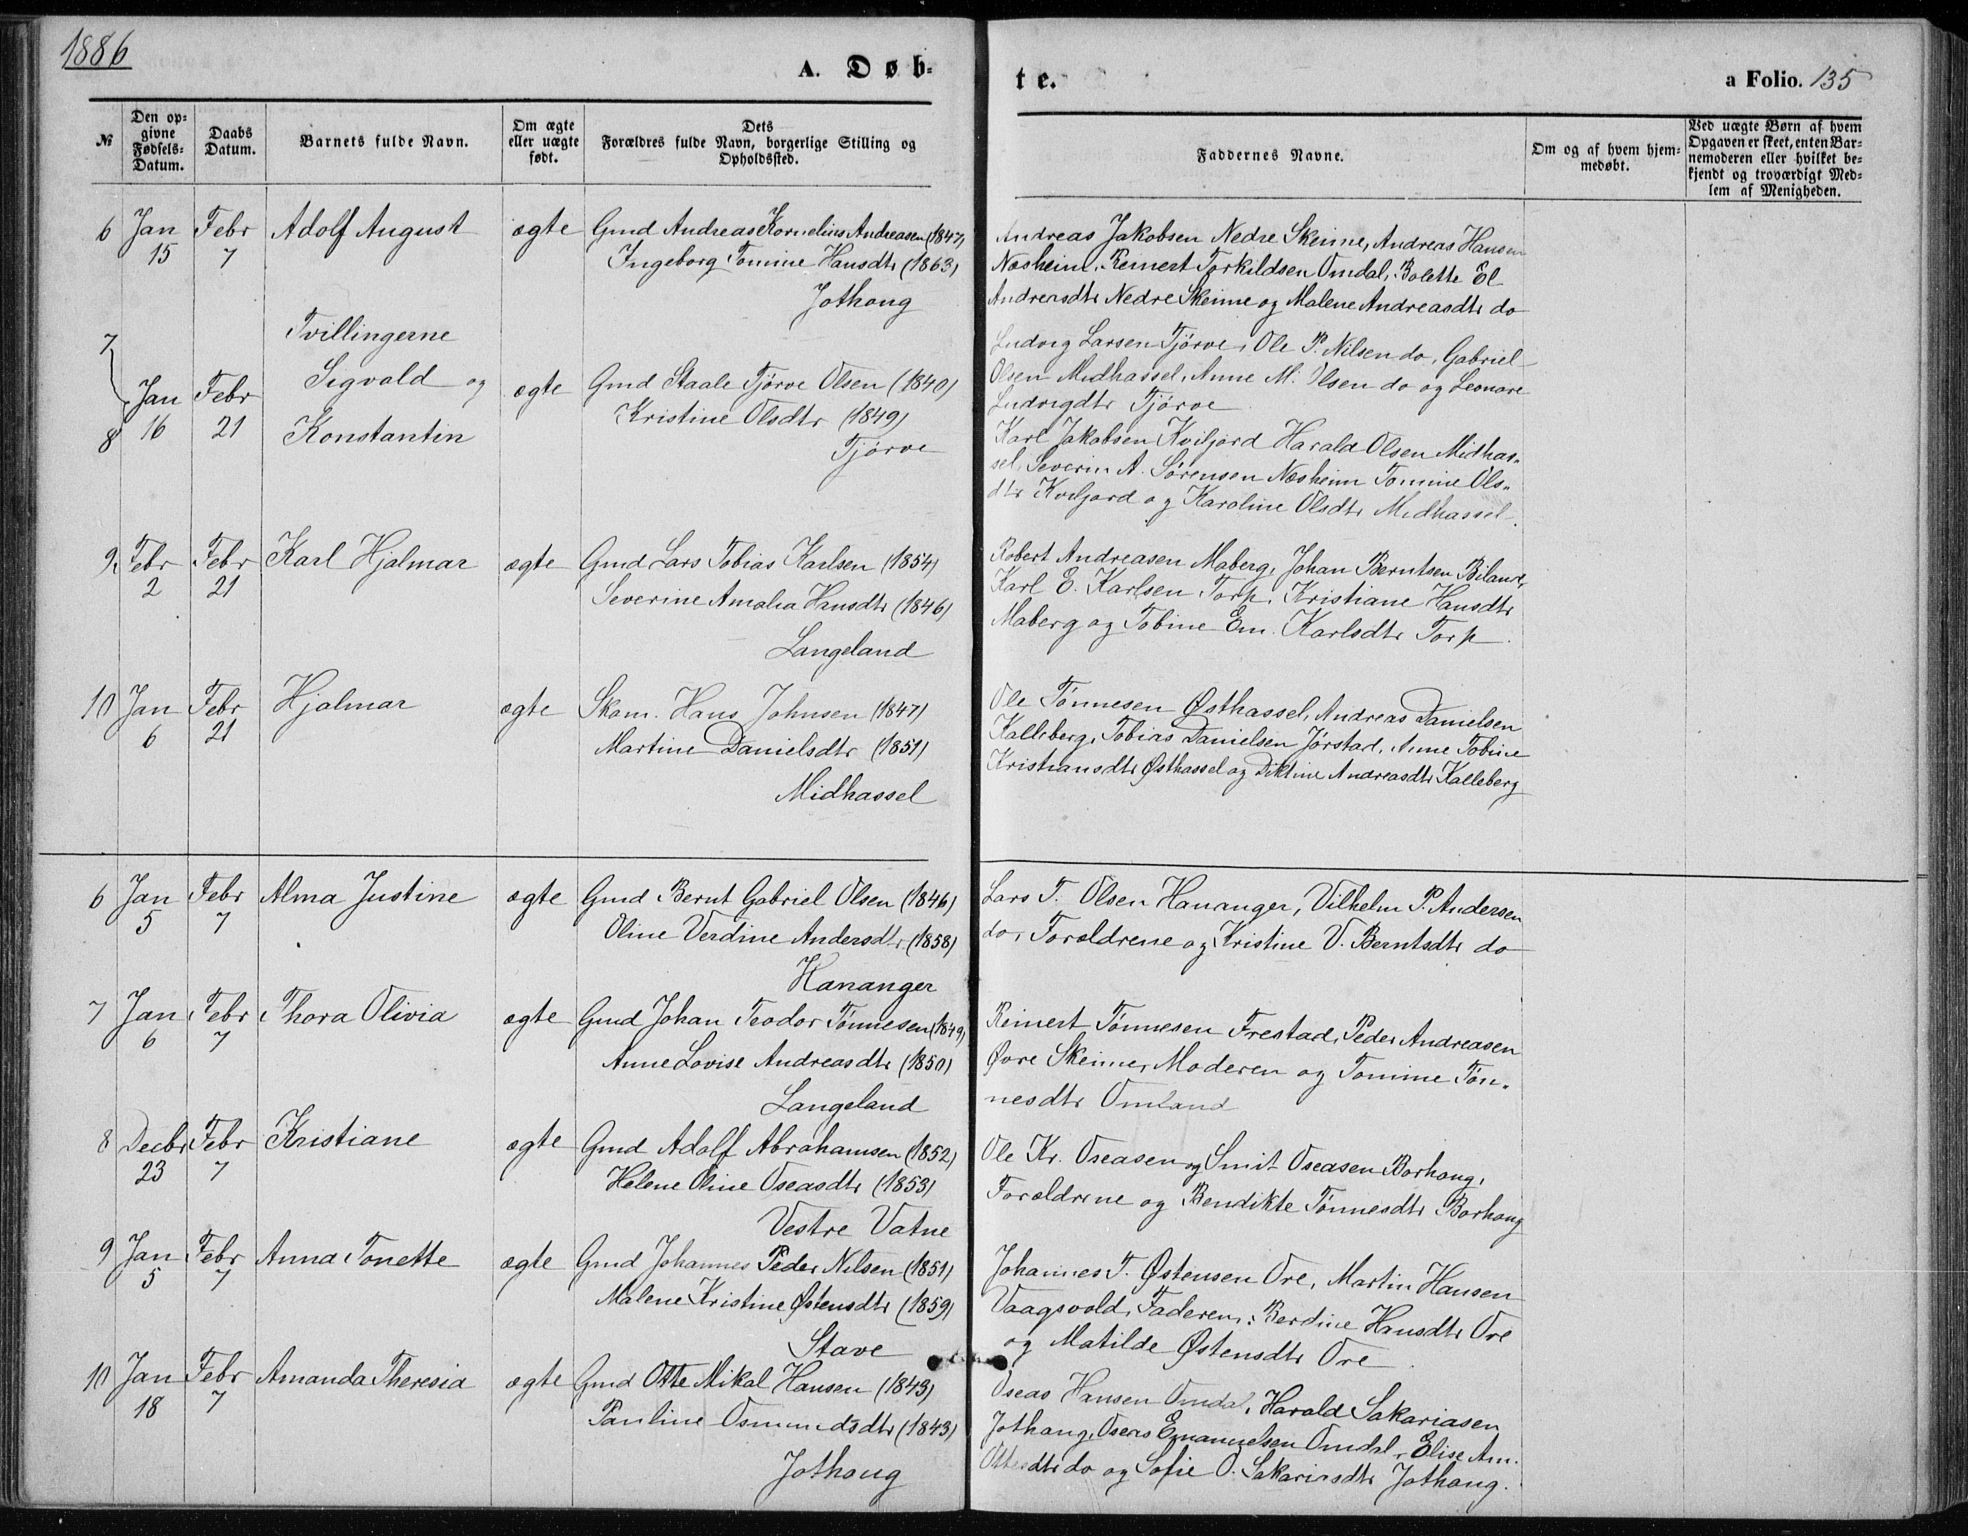 1886
A. Døb-
te.
a Folio. 135
№
Den op-
givne
Fødsels-
Datum.
Daabs
Datum.
Barnets fulde Navn.
Om ægte
eller uægte
født.
Dets
Forældres fulde Navn, borgerlige Stilling og
Opholdssted.
Faddernes Navne.
Om og af hvem hjem-
medøbt.
Ved uægte Børn af hvem
Opgaven er skeet, enten Bar-
nemoderen eller hvilket be-
kjendt og troværdigt Med-
lem af Menigheden.
6 Jan Febr Adolf August ægte Gmd Andreas Kornelius Andreasen (1847)
15 7 Ingeborg Tomine Hansdtr (1863)
Jothoug
Andreas Jakobsen Nedre Skeime, Andreas Hansen
Næsheim, Reinert Torkildsen Omdal, Bolette El
Andreasdtr Nedre Skeime og Malene Andreasdtr do
7 Tvillingerne
Sigvald og
Jan Febr ægte Gmd Staale Tjørve Olsen (1840)
8 16 21 Konstantin Kristine Olsdtr (1849)
Tjørve
Ludvig Larsen Tjørve, Ole P. Nilsen do, Gabriel
Olsen Midhassel, Anne M. Olsen do og Leonore
Ludvigdtr Tjørve
Karl Jakobsen Kviljord Harald Olsen Midhas-
sel, Severin A. Sørensen Næsheim Tomine Ols-
dtr Kviljord og Karoline Olsdtr Midhassel.
9 Febr Febr Karl Hjalmar ægte Gmd Lars Tobias Karlsen (1854)
2 21 Severine Amalia Hansdtr (1846)
Langeland
Robert Andreasen Maberg, Johan Berntsen Biland,
Karl E. Karlsen Torp, Kristiane Hansdtr
Maberg og Tobine Em. Karlsdtr Torp.
10 Jan Febr Hjalmar ægte Skom. Hans Johnsen (1847)
6 21 Martine Danielsdtr (1851)
Midhassel
Ole Tønnesen Østhassel, Andreas Danielsen
Kalleberg, Tobias Danielsen Jørstad, Anne Tobine
Kristiansdtr Østhassel og Diktine Andreasdtr Kalleberg
6 Jan Febr Alma Justine ægte Gmd Bernt Gabriel Olsen (1846)
5 7 Oline Verdine Andersdtr (1858)
Hananger
Lars T. Olsen Hananger, Vilhelm P. Andersen
do, Forældrene og Kristine V. Berntsdtr do
7 Jan Febr Thora Olivia ægte Gmd Johan Teodor Tønnesen (1849)
6 7 Anne Lovise Andreasdtr (1850)
Langeland
Reinert Tønnesen Frestad, Peder Andreasen
Øvre Skeime, Moderen og Tomine Tøn-
nesdtr Omland
8 Decbr Febr Kristiane ægte Gmd Adolf Abrahamsen (1852)
23 7 Helene Oline Oseasdtr (1853)
Vestre Vatne
Ole Kr. Oseasen og Smit Oseasen Borhoug,
Forældrene og Bendikte Tønnesdtr Borhoug
9 Jan Febr Anna Tonette ægte Gmd Johannes Peder Nilsen (1851)
5 7 Malene Kristine Østensdtr (1859)
Stave
Johannes T. Østensen Ore, Martin Hansen
Vaagsvold, Faderen, Berdine Hansdtr Ore
og Matilde Østensdtr Ore.
10 Jan Febr Amanda Theresia ægte Gmd Otte Mikal Hansen (1843)
18 7 Pauline Osmundsdtr (1843)
Jothoug
Oseas Hansen Omdal, Harald Sakariasen
Jothoug, Oseas Emanuelsen Omdal, Elise Am.
Ottesdtr do og Sofie O. Sakariasdtr Jothoug.